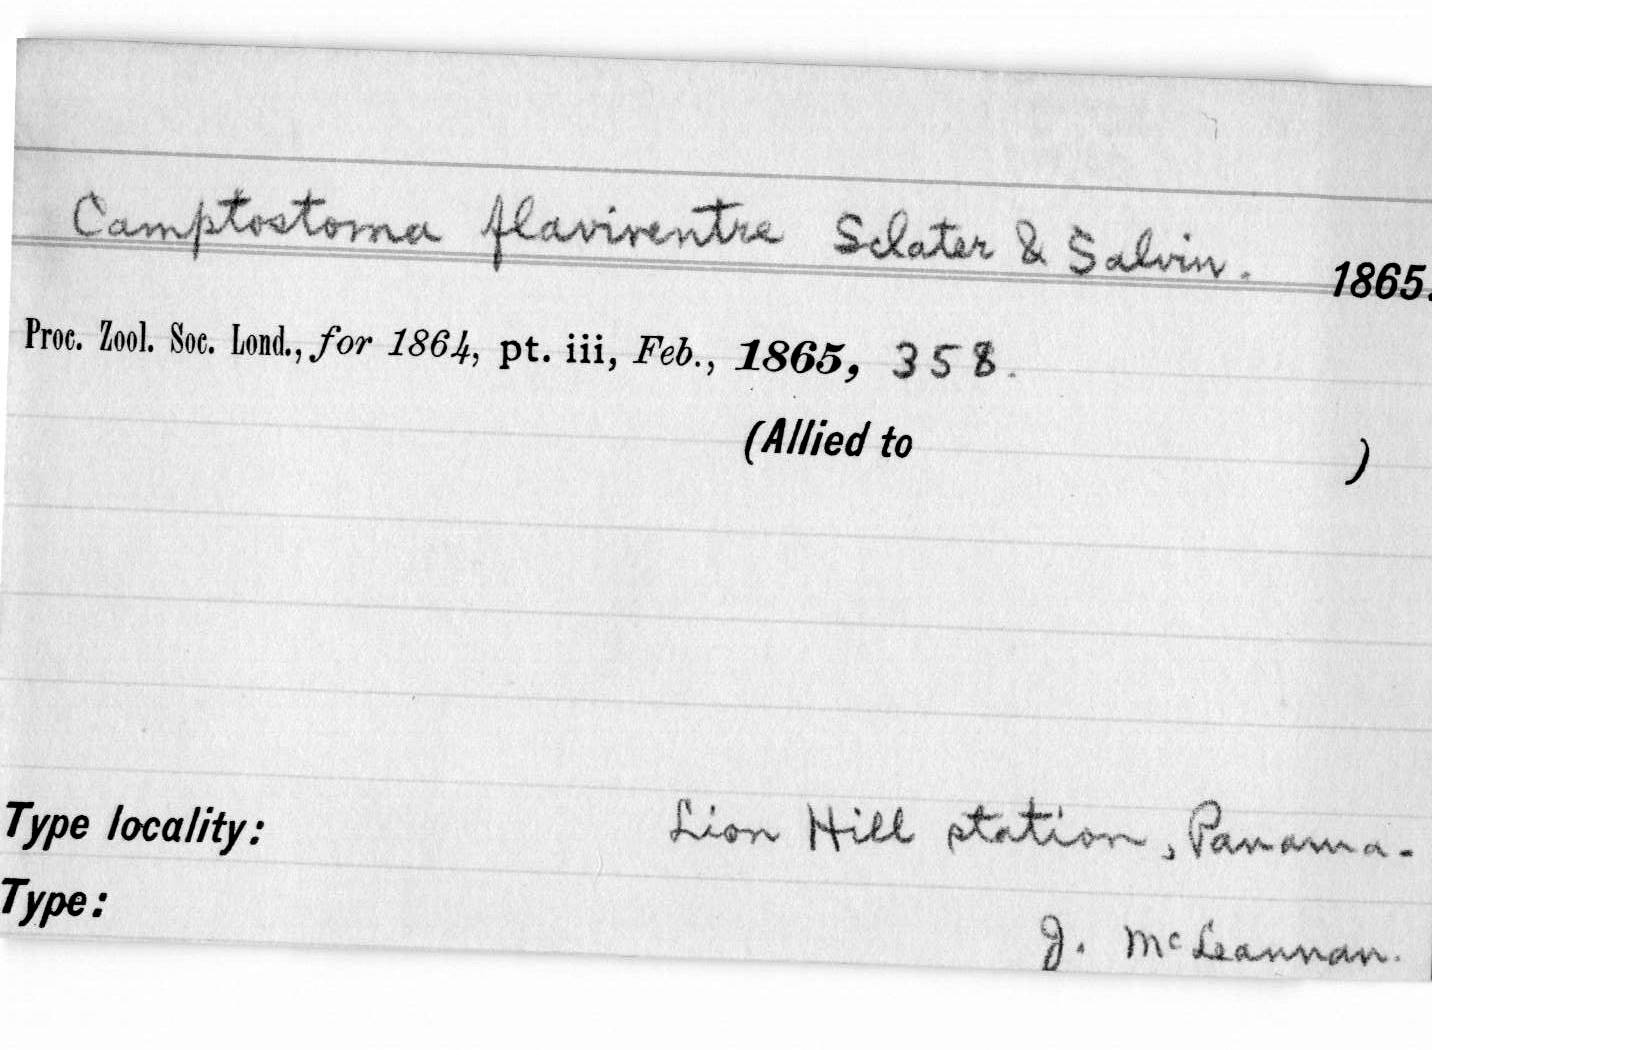 Camptostoma flaviventre Sclater & Salvin. 1865.
Proc. Zool. Soc. Lond., for 1864, pt. iii, Feb., 1865, 358.
(Allied to )
Type locality: Lion Hill station, Panama.
Type: J. McLeannan.